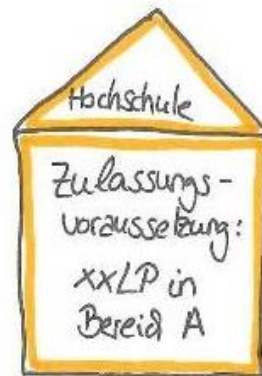 Hochschule
Zulassungs-
voraussetzung:
xxLP in
Bereich A